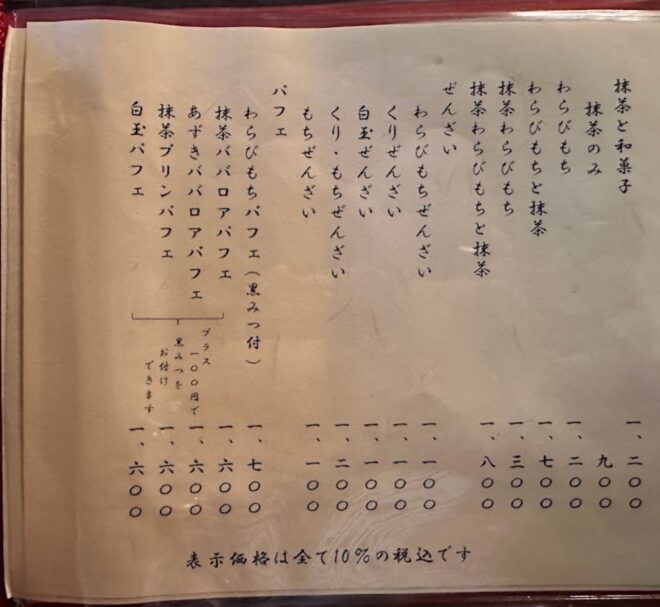 抹茶と和菓子 一、二〇〇
抹茶のみ 九〇〇
わらびもち 一、二〇〇
わらびもちと抹茶 一、七〇〇
抹茶わらびもち 一、三〇〇
抹茶わらびもちと抹茶 一、八〇〇
ぜんざい
わらびもちぜんざい 一、一〇〇
くりぜんざい 一、一〇〇
白玉ぜんざい 一、一〇〇
くり・もちぜんざい 一、二〇〇
もちぜんざい 一、一〇〇
パフェ
わらびもちパフェ(黒みつ付) 一、七〇〇
抹茶ババロアパフェ 一、六〇〇
あずきババロアパフェ 一、六〇〇
抹茶プリンパフェ 一、六〇〇
白玉パフェ 一、六〇〇
プラス
一〇〇円で
黒みつを
お付け
できます
表示価格は全て10%の税込です